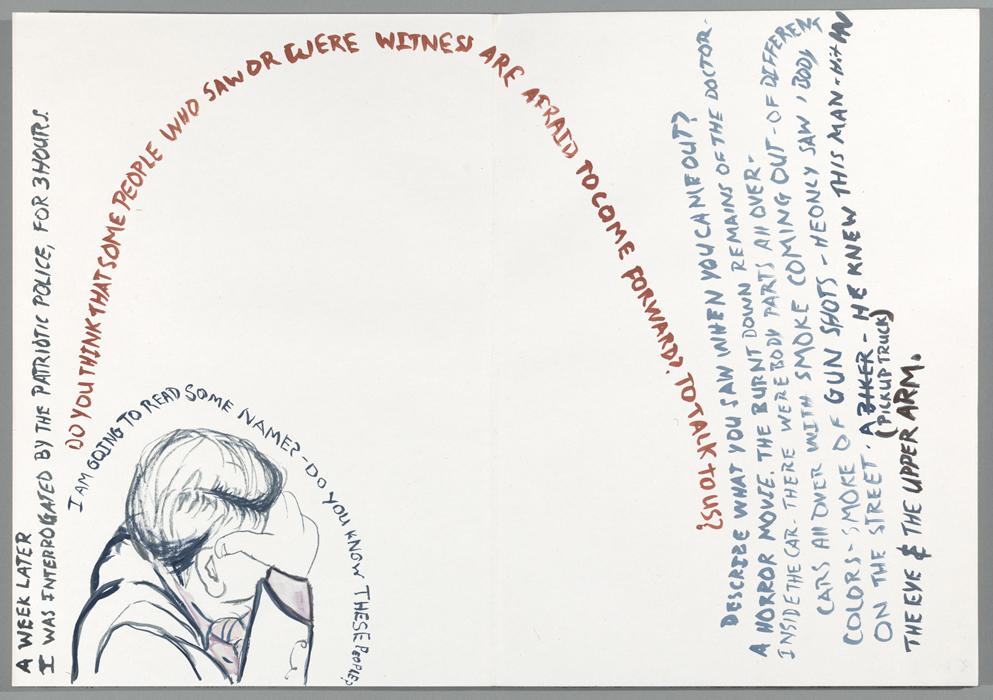 A WEEK LATER
I WAS INTERROGATED BY THE PATRIOTIC POLICE, FOR 3 HOURS.
DO YOU THINK THAT SOME PEOPLE WHO SAW OR WERE WITNESS ARE AFRAID TO COME FORWARD?. TO TALK TO US?
I AM GOING TO READ SOME NAME? - DO YOU KNOW THESE PEOPLE?
DESCRIBE WHAT YOU SAW WHEN YOU CAME OUT?
A HORROR MOVIE. THE BURNT DOWN REMAINS OF THE DOCTOR.
INSIDE THE CAR - THERE WERE BODY PARTS All OVER -
CARS All OVER WITH SMOKE COMING OUT - OF DIFFERENT
COLORS - SMOKE OF GUN SHOTS - HE ONLY SAW 1 BODY
ON THE STREET. A BIKER - HE KNEW THIS MAN - Hit IN
(PICKUP TRUCK)
THE EYE & THE UPPER ARM.